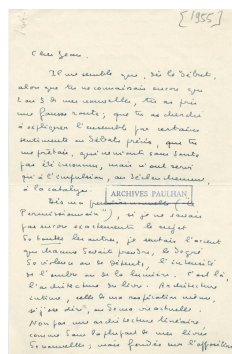 [1955]
Cher Jean,
Il me semble que, dès le début,
alors que tu ne connaissais encore que
2 ou 3 de mes nouvelles, tu as pris
une fausse route ; que tu as cherché
à expliquer l'ensemble par certains
sentiments ou débats précis, que tu
me prêtais, qui ne m'ont sans doute
pas été inconnus, mais n'ont servi
qu'à l'impulsion, au déclenchement,
à la catalyse.
ARCHIVES PAULHAN
Dès ma première nouvelle ("Le
Permissionnaire"), si je ne savais
pas encore exactement le sujet
de toutes les autres, je sentais l'accent
que chacune devait prendre, le degré
de violence ou de détente, l'intensité
de l'ombre ou de la lumière. C'est là,
l'architecture du livre. Architecture
intime, celle de ma respiration même,
si j'ose dire, ou de ma vie actuelle.
Non pas une architecture linéaire
comme dans la plupart de mes livres
de nouvelles ; mais fondée sur l'opposition